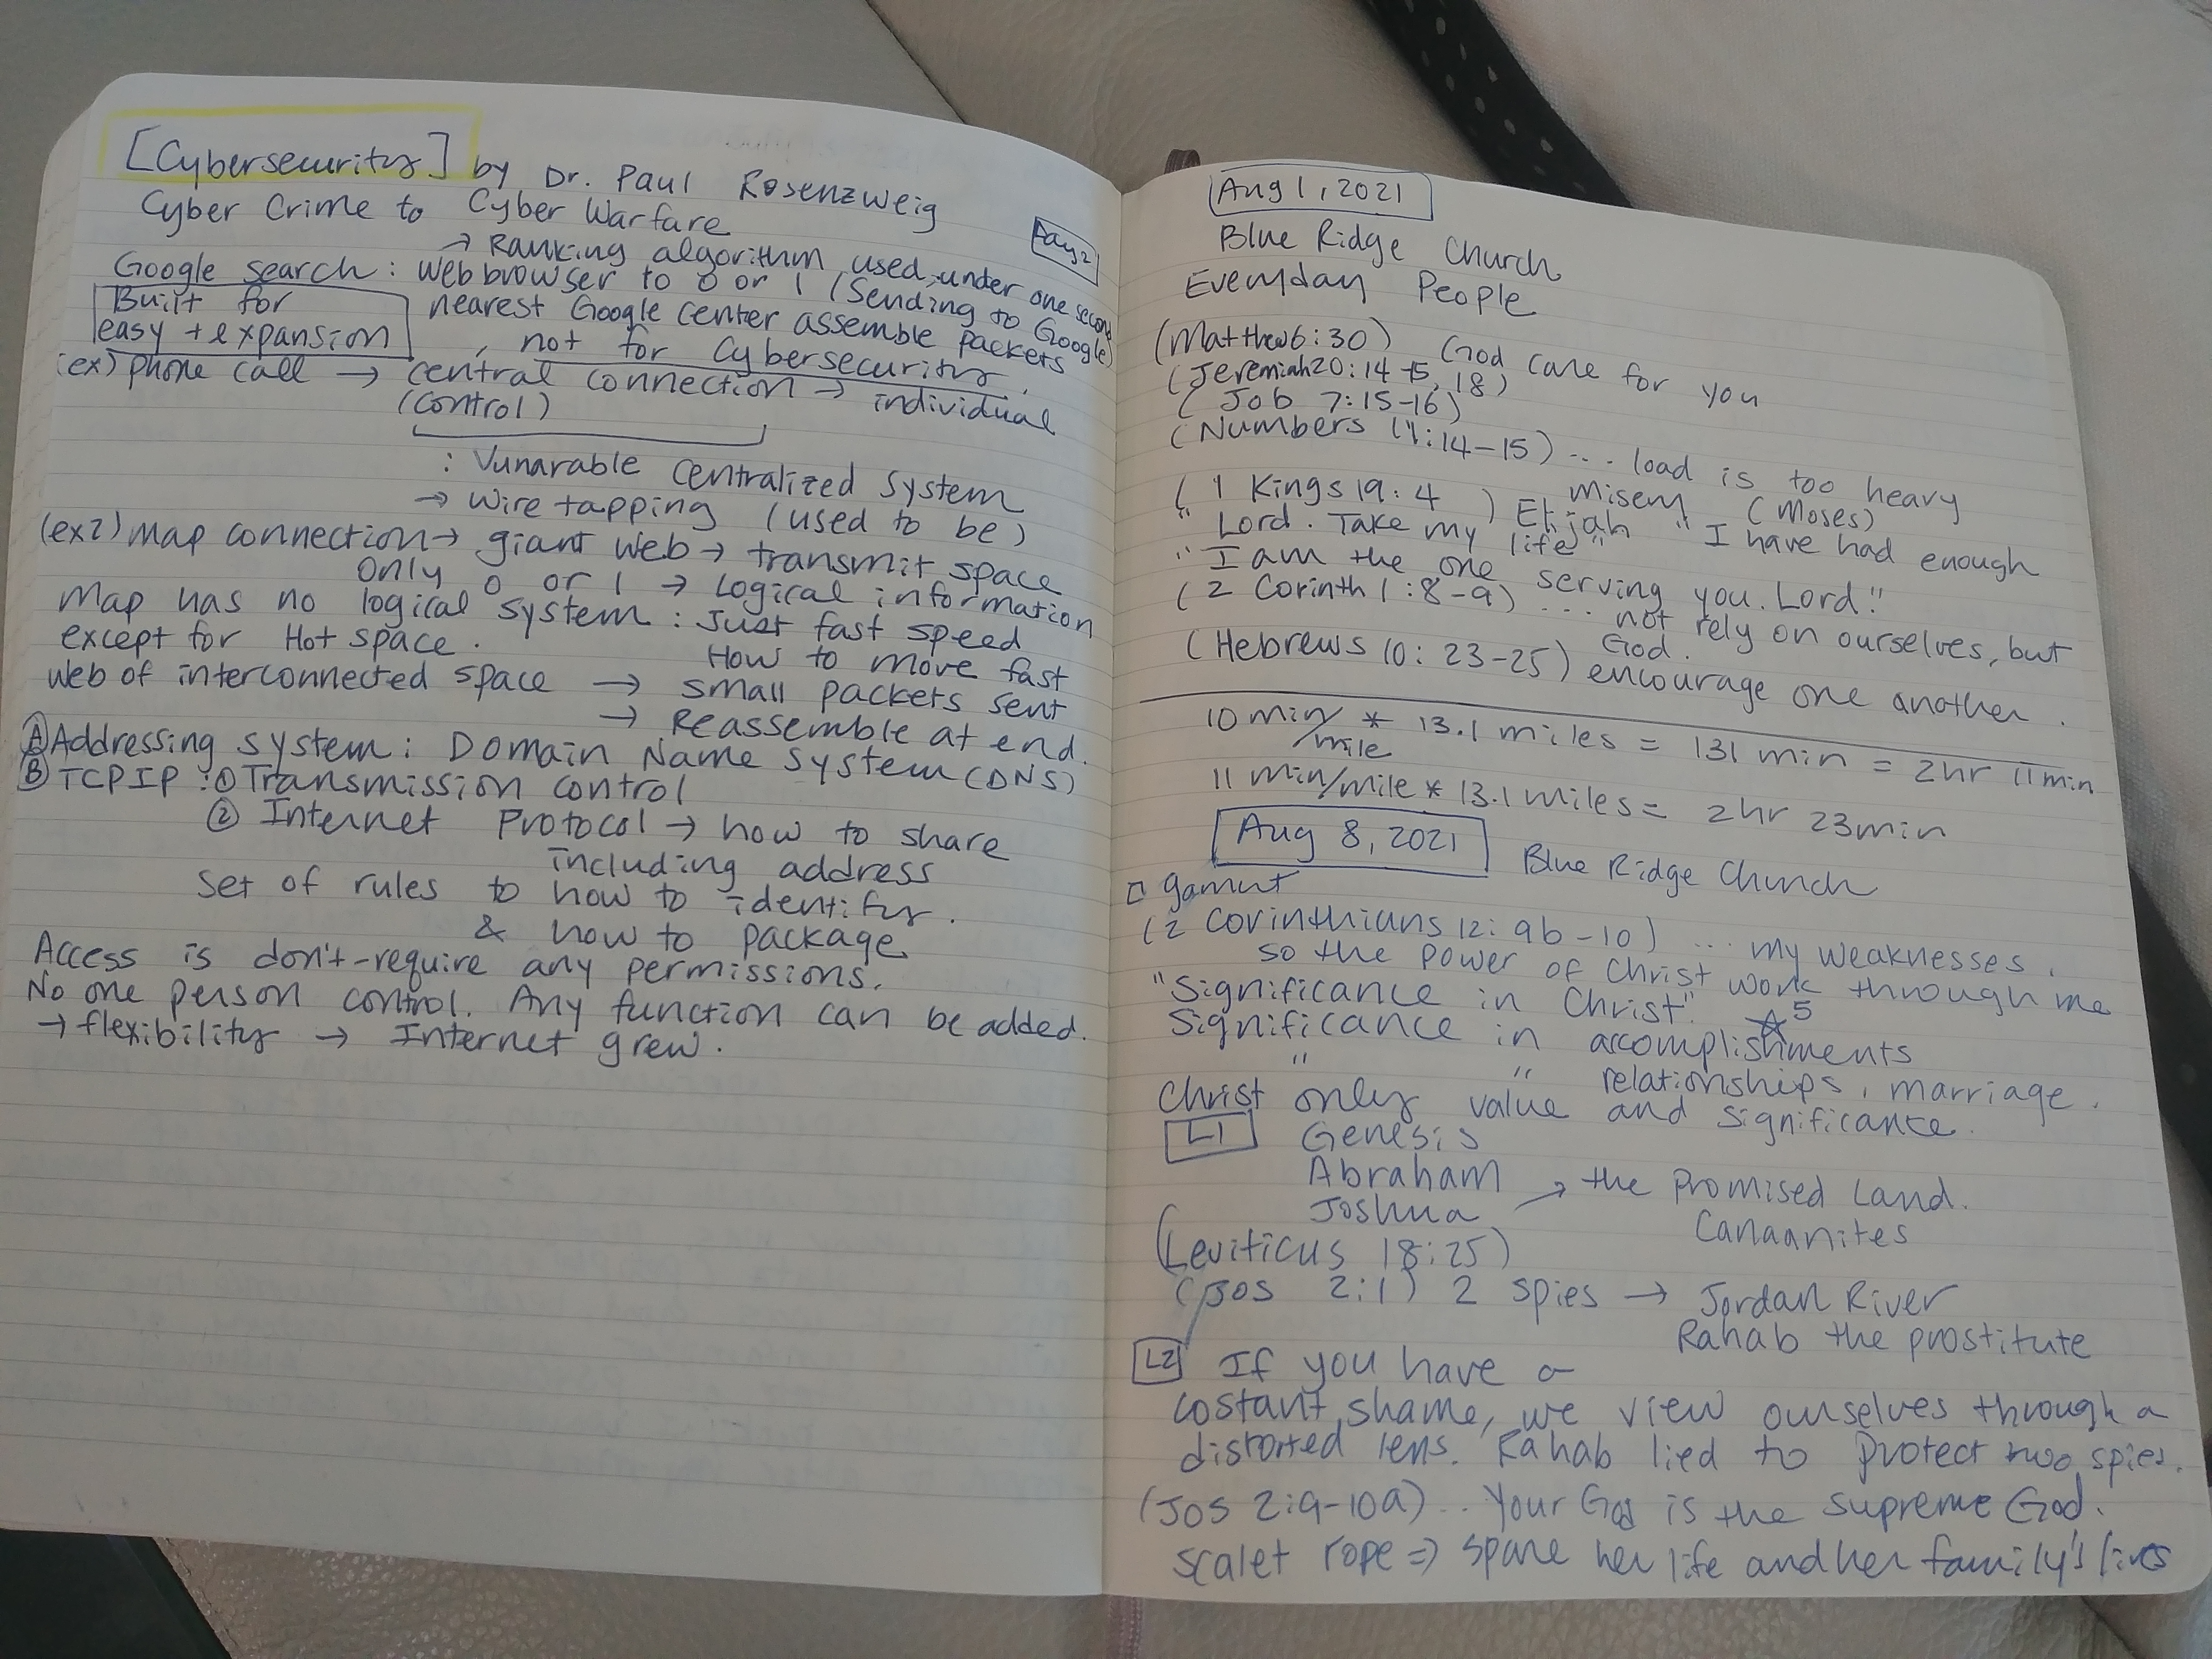 [Cybersecurity] by Dr. Paul Rosenzweig
Cyber Crime to Cyber Warfare
Day 2
→ Ranking algorithm used, under one second
Google search: Web browser to 0 or 1 (Sending to Google)
Built for
easy + expansion
nearest Google center assemble packets
, not for Cybersecurity.
(ex) phone call → central connection → individual
(control)
: Vunarable centralized system
→ wire tapping (used to be)
(ex2) map connection → giant web → transmit space
only 0 or 1 → Logical information
Map has no logical system: Just fast speed
except for Hot space.
How to move fast
web of interconnected space → small packets sent
→ Reassemble at end.
Ⓐ Addressing system: Domain Name System (DNS)
Ⓑ TCPIP: ① Transmission control
② Internet Protocol → how to share
including address
Set of rules to how to identify.
& how to package
Access is don't-require any permissions.
No one person control. Any function can be added.
→ flexibility → Internet grew.
Aug 1, 2021
Blue Ridge Church
Everyday People
(Matthew 6:30) God care for you
(Jeremiah 20:14-15, 18)
(Job 7:15-16)
(Numbers 11:14-15) ... load is too heavy
misery (Moses)
(1 Kings 19:4) Elijah "I have had enough
"Lord. Take my life"
"I am the one serving you. Lord."
(2 Corinth 1:8-9) ... not rely on ourselves, but
God.
(Hebrews 10:23-25) encourage one another.
10 min/mile * 13.1 miles = 131 min = 2hr 11min
11 min/mile * 13.1 miles = 2hr 23min
Aug 8, 2021 Blue Ridge Church
□ gamut
(2 Corinthians 12:9b-10) ... my weaknesses,
so the power of Christ work through me
"Significance in Christ". ☆5
Significance in accomplishments
" " relationships, marriage.
Christ only value and significance.
L1 Genesis
Abraham
Joshua → the Promised Land.
Canaanites
(Leviticus 18:25)
(Jos 2:1) 2 spies → Jordan River
Rahab the prostitute
L2 If you have a
costant shame, we view ourselves through a
distorted lens. Rahab lied to protect two spies.
(Jos 2:9-10a) .. Your God is the supreme God.
scalet rope ⇒ spare her life and her family's lives